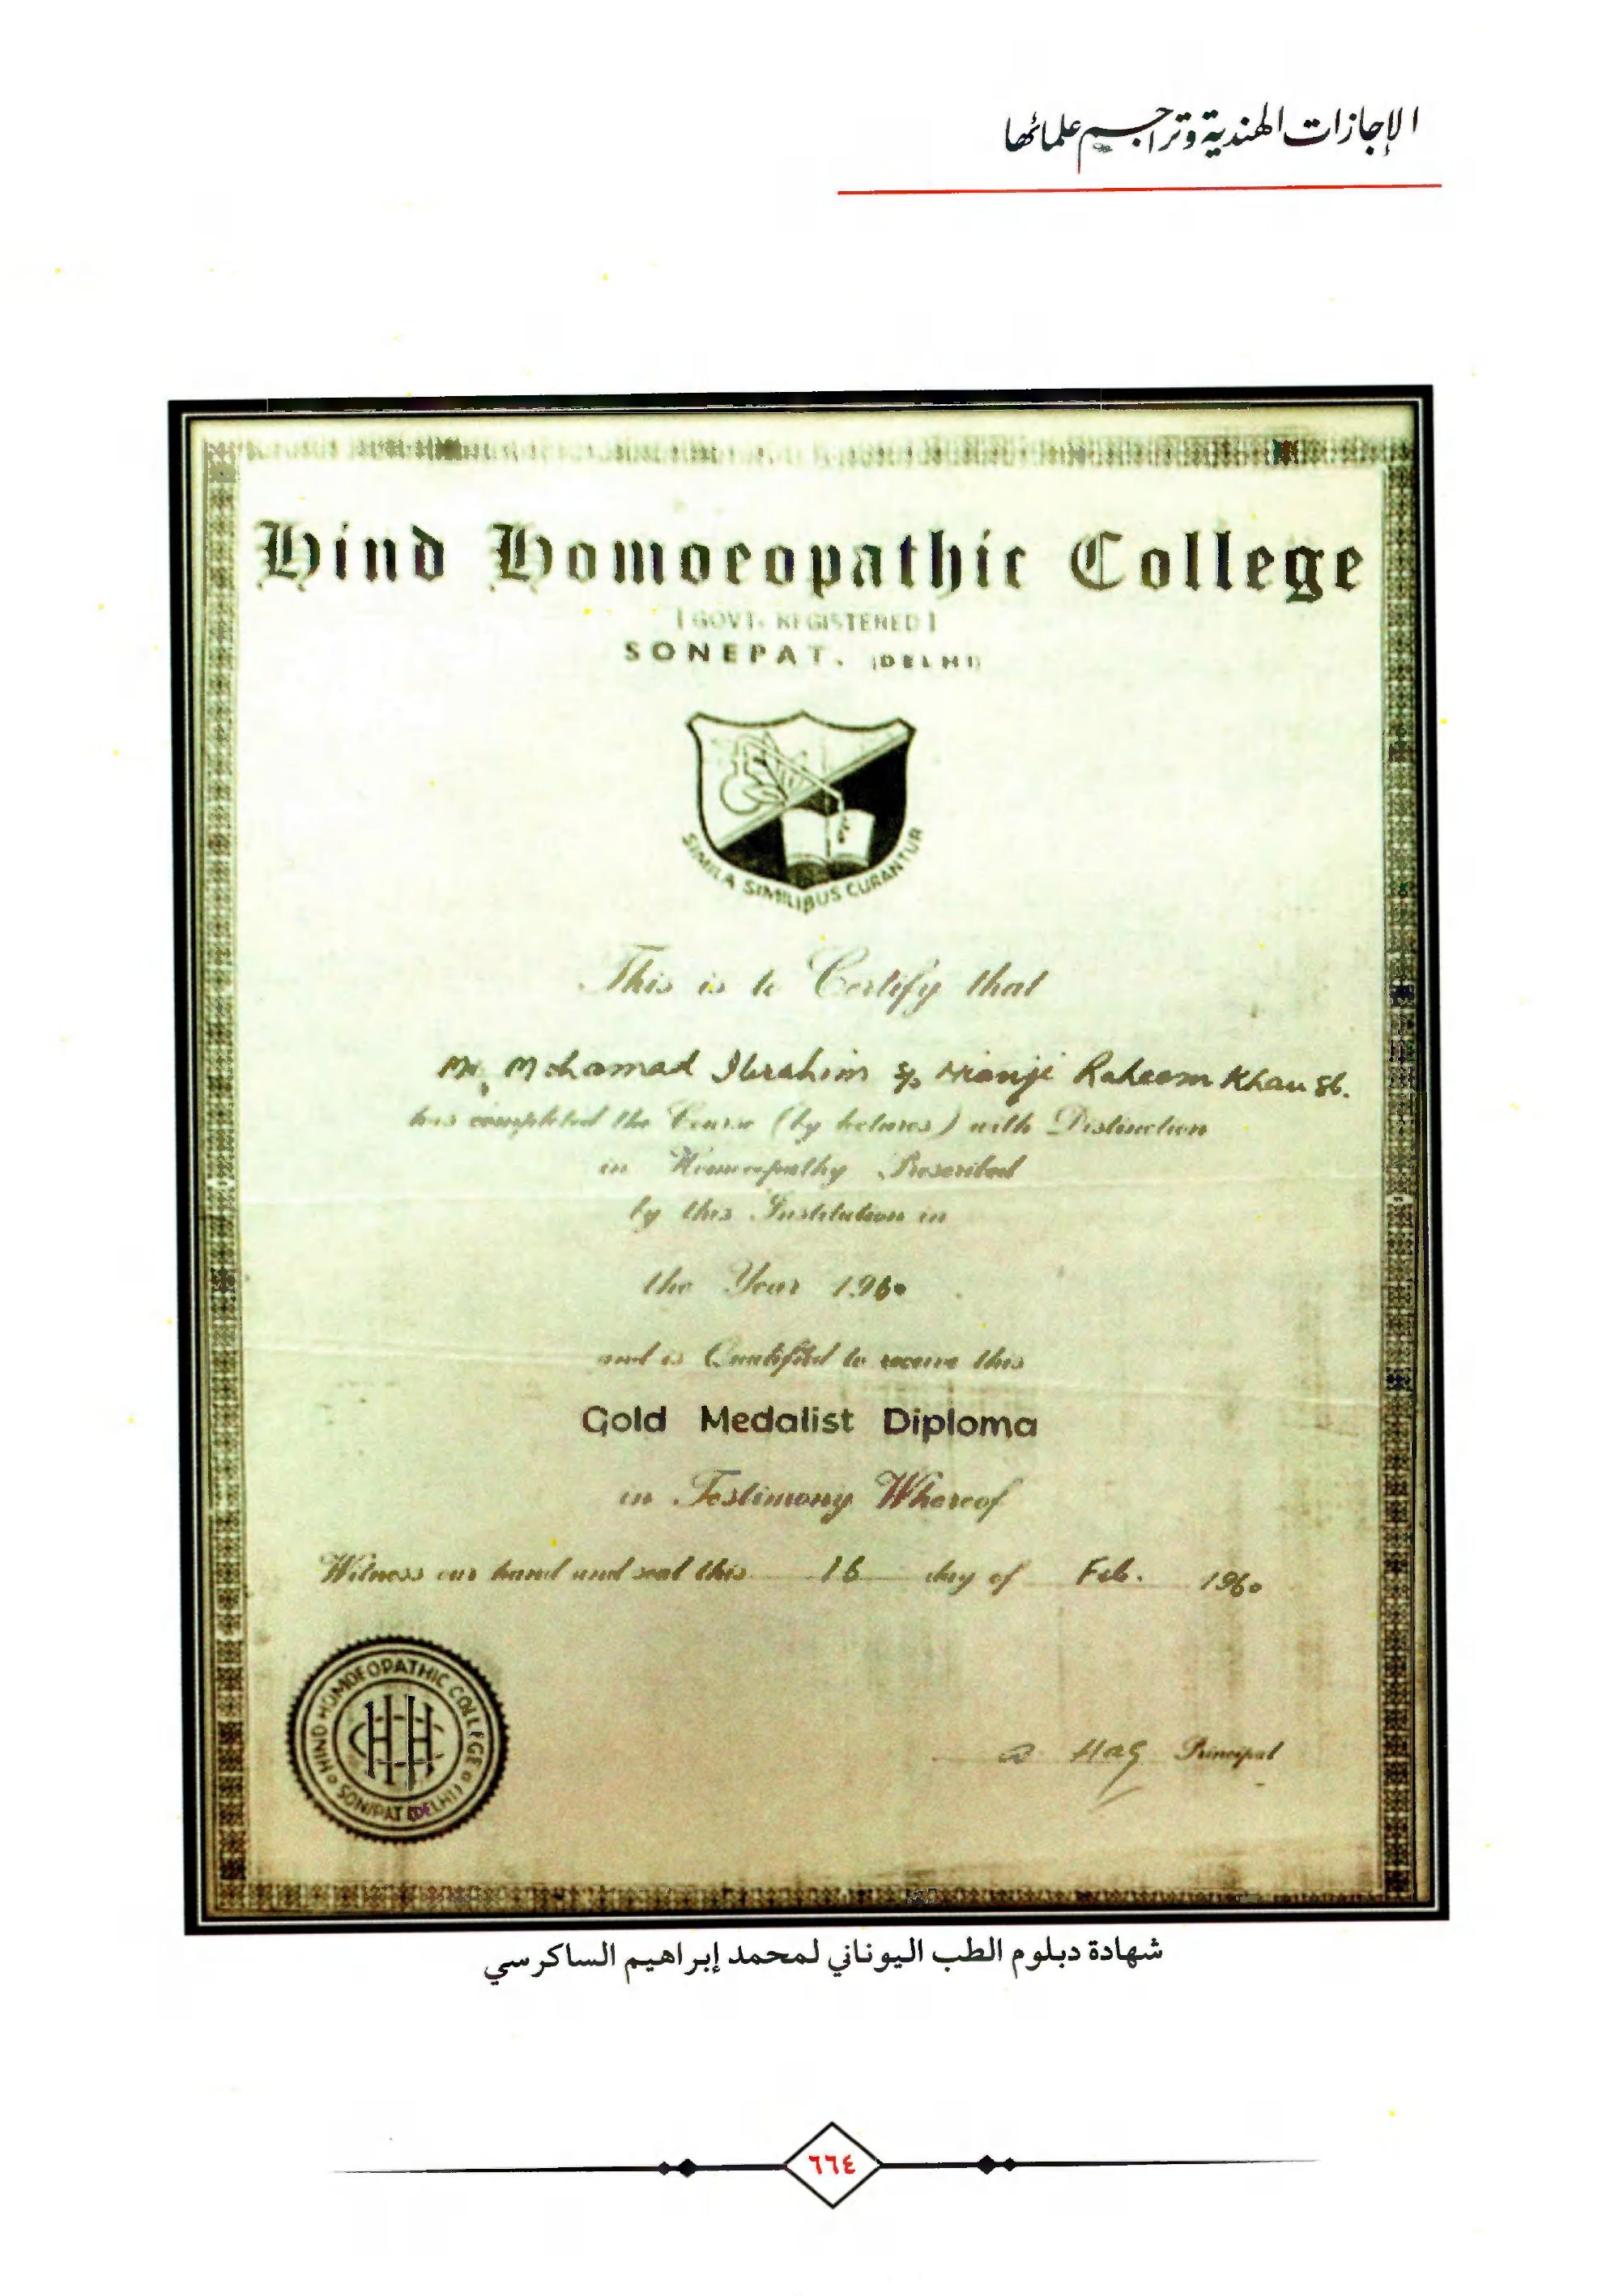 الإجازات الهندية وتراجم علمائها
Hind Homoeopathic College
[GOVT. REGISTERED]
SONEPAT. (DELHI)
SIMILA SIMILIBUS CURANTUR
This is to Certify that
Mr. Mohamad Ibrahim S/o Mianji Raheem Khan Sb.
has completed the Course (by lectures) with Distinction
in Homoeopathy Prescribed
by this Institution in
the Year 1960
and is Qualified to receive this
Gold Medalist Diploma
in Testimony Whereof
Witness our hand and seal this 16 day of Feb. 1960
HIND HOMOEOPATHIC COLLEGE
SONIPAT (DELHI)
HHC
a Haq Principal
شهادة دبلوم الطب اليوناني لمحمد إبراهيم الساكرسي
٦٦٤